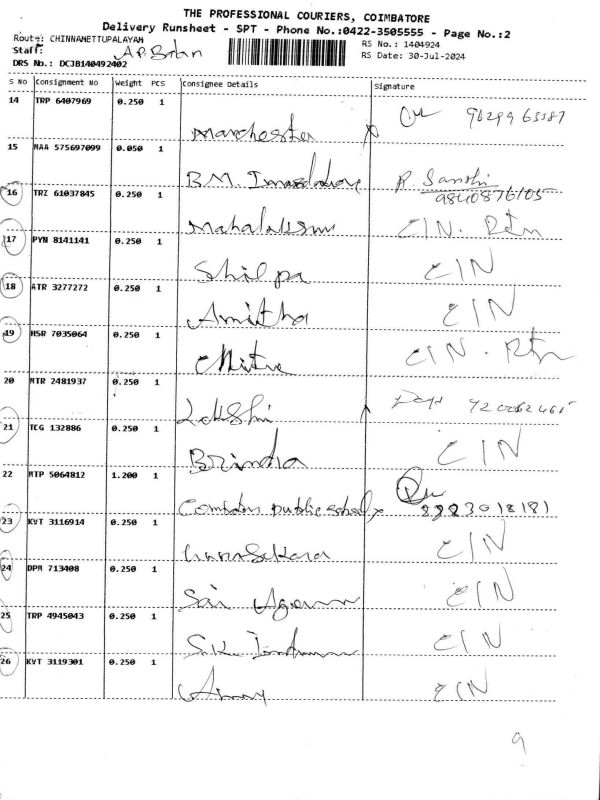 THE PROFESSIONAL COURIERS, COIMBATORE
Delivery Runsheet - SPT - Phone No.:0422-3505555 - Page No.:2
Route: CHINNAMETTUPALAYAM
RS No.: 1404924
Staff:
RS Date: 30-Jul-2024
DRS No.: DCJB140492402
S No Consignment No Weight PCS Consignee Details Signature
14 TRP 6407969 0.250 1 Manchester
15 MAA 575697099 0.050 1 B.M.
16 TRZ 61037845 0.250 1 Mahalaksmi CIN. Rtn
17 PYN 8141141 0.250 1 Shilpa CIN
18 ATR 3277272 0.250 1 Amitha CIN
19 HSR 7035064 0.250 1 CIN. Rtn
20 MTR 2481937 0.250 1
21 TCG 132886 0.250 1 Brindha CIN
22 MTP 5064812 1.200 1 public
23 KVT 3116914 0.250 1 CIN
24 DPM 713408 0.250 1 Sai CIN
25 TRP 4945043 0.250 1 S.K. CIN
26 KVT 3119301 0.250 1 CIN
9